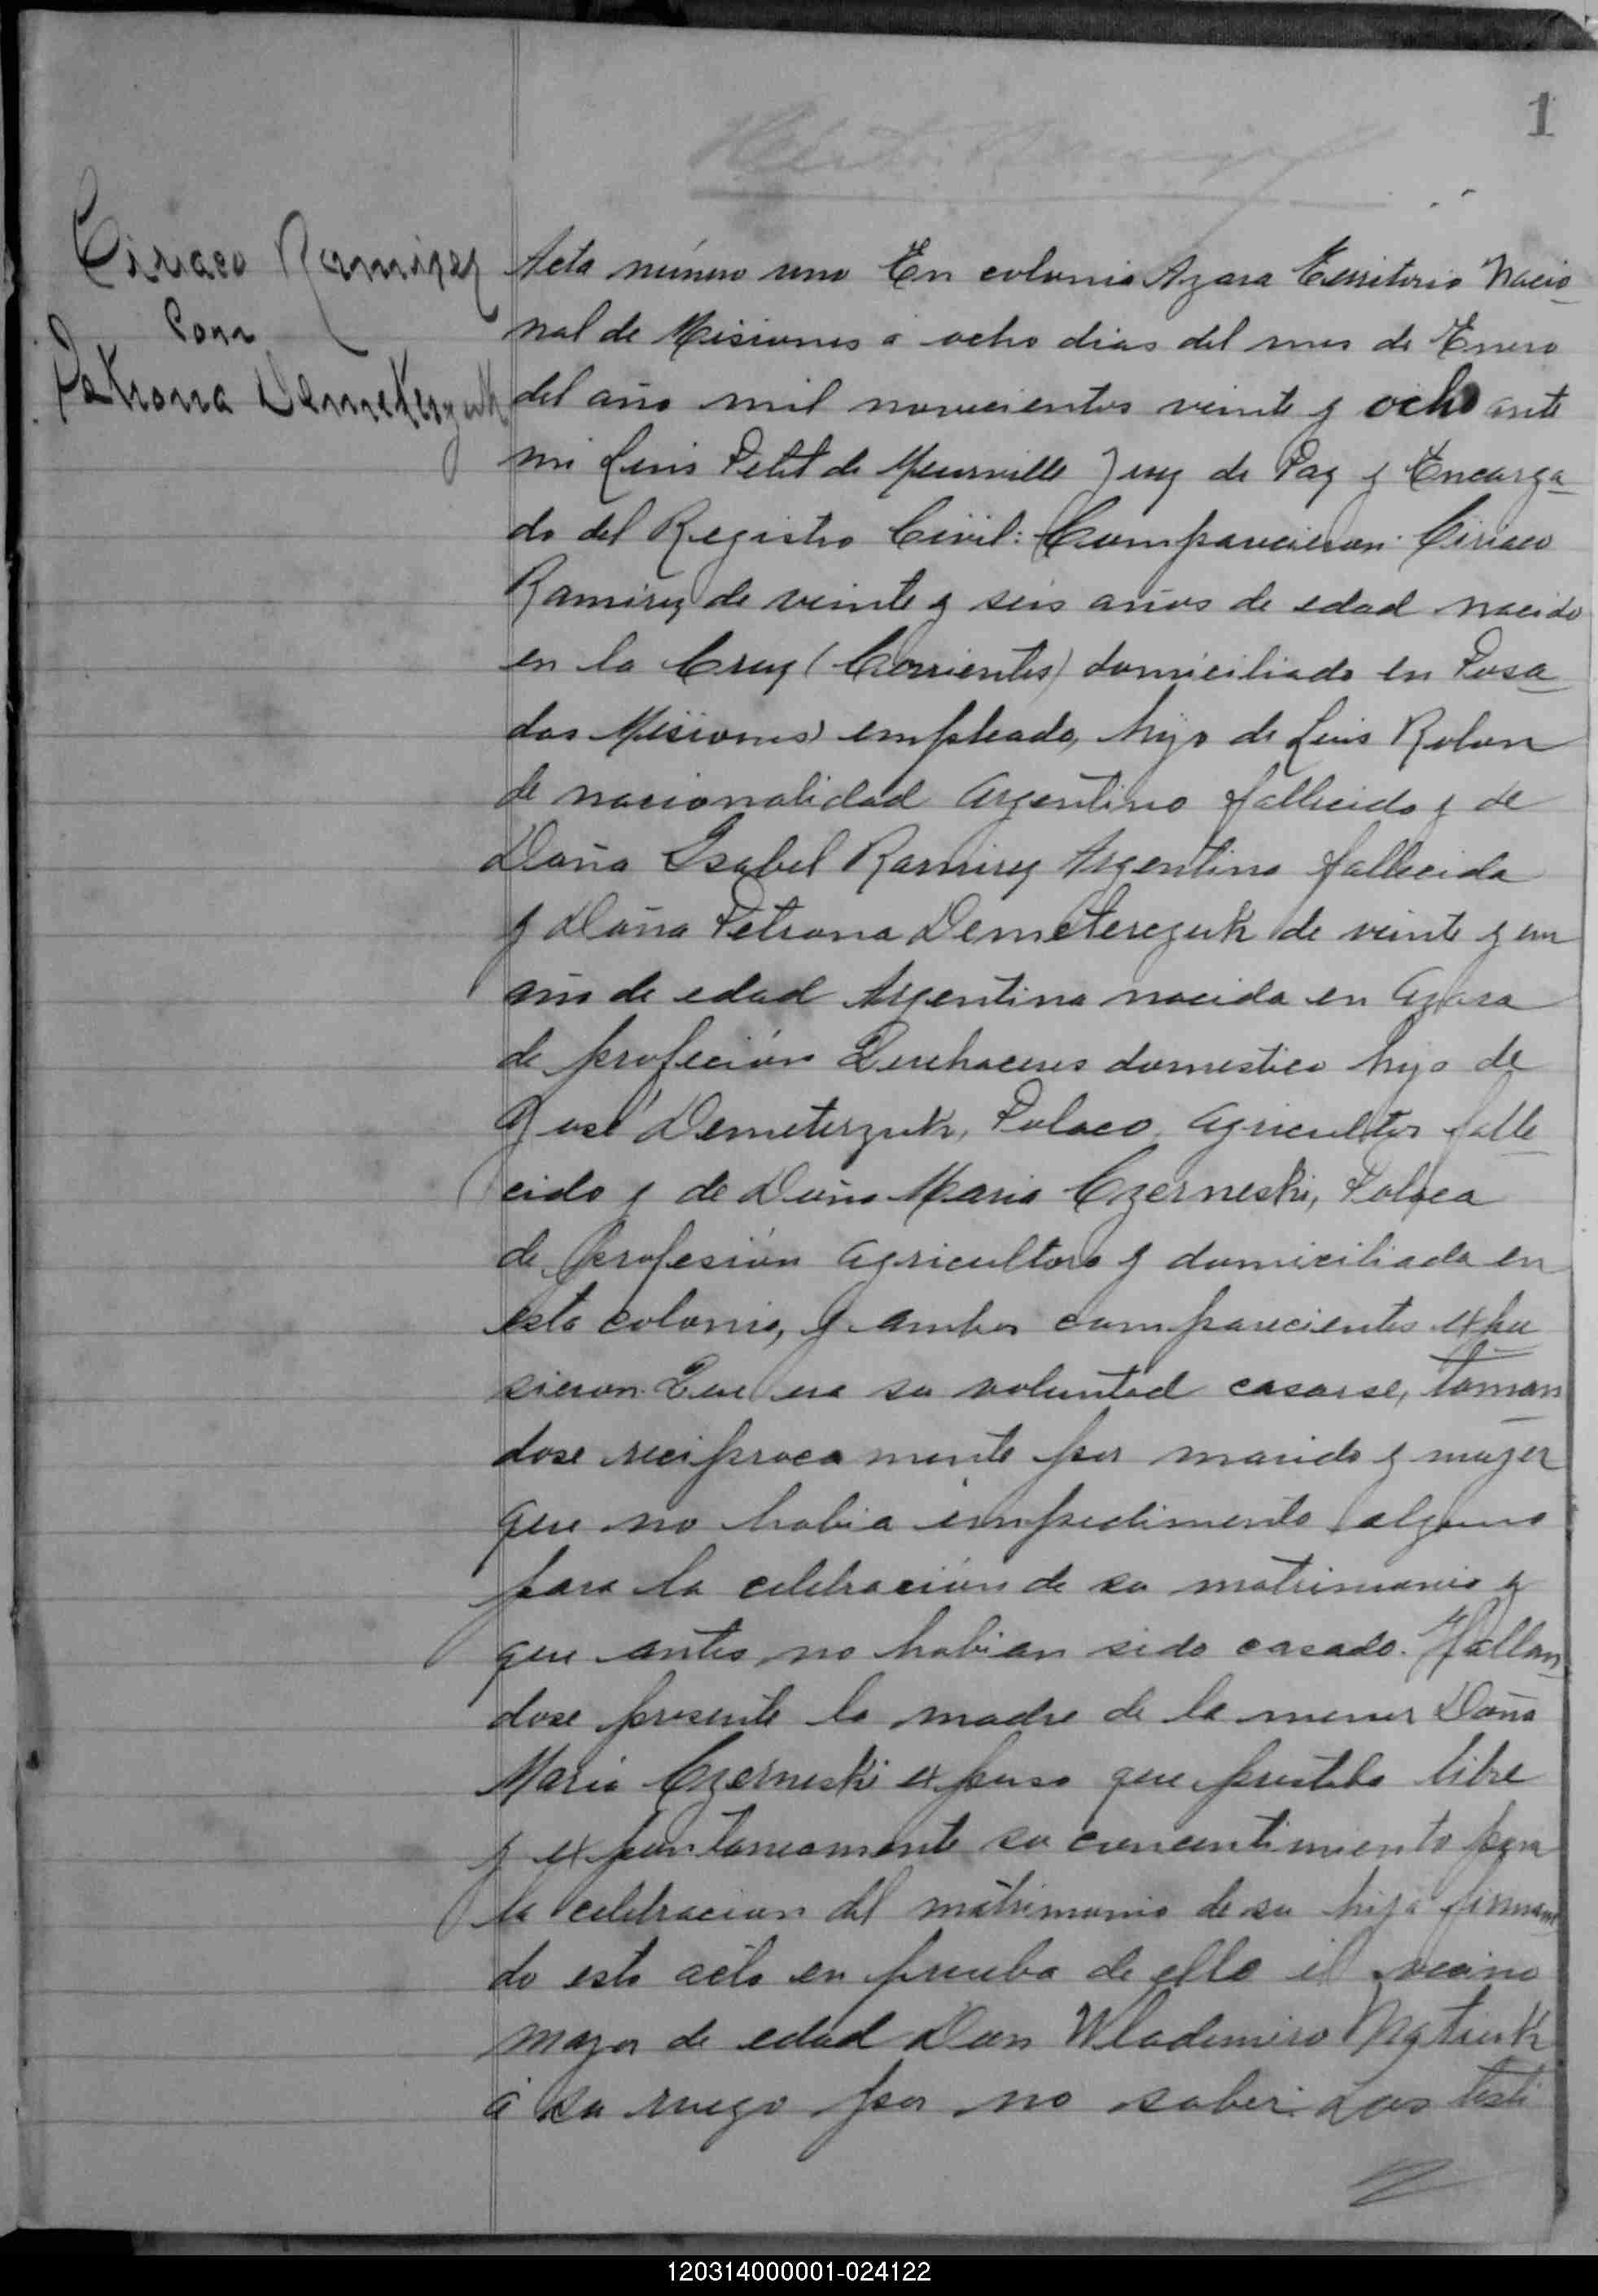 1
Ciriaco Ramirez
con
Petrona Demeterczuk
Acta número uno En colonia Azara Territorio Nacio
nal de Misiones á ocho dias del mes de Enero
del año mil novecientos veinte y ocho ante
mi Luis Petit de Meurville Juez de Paz y Encarga
do del Registro Civil: Comparecieron: Ciriaco
Ramirez de veinte y seis años de edad nacido
en la Cruz (Corrientes) domiciliado en Posa
das Misiones) empleado, hijo de Luis Rolon
de nacionalidad Argentino fallecido y de
Doña Isabel Ramirez Argentina fallecida
y Doña Petrona Demeterczuk de veinte y un
año de edad Argentina nacida en Azara
de profeción Quehaceres domestico hija de
José Demeterzuk, Polaco, Agricultor falle
cido y de Doña Maria Czerneski, Polaca
de profesión Agricultora y domiciliada en
esta colonia, y ambos comparecientes expu
sieron: Que era su voluntad casarse, toman
dose reciproca mente por marido y mujer
que no habia impedimento alguno
para la celebración de su matrimonio y
que antes no habian sido casado. Hallan
dose presente la madre de la menor Doña
Maria Czerneski expuso que prestaba libre
y expontaneamente su concentimiento para
la celebracion del matrimonio de su hija firman
do esta acta en prueba de ello el vecino
mayor de edad Don Wlademiro
á su ruego por no saber. Los testi
120314000001-024122